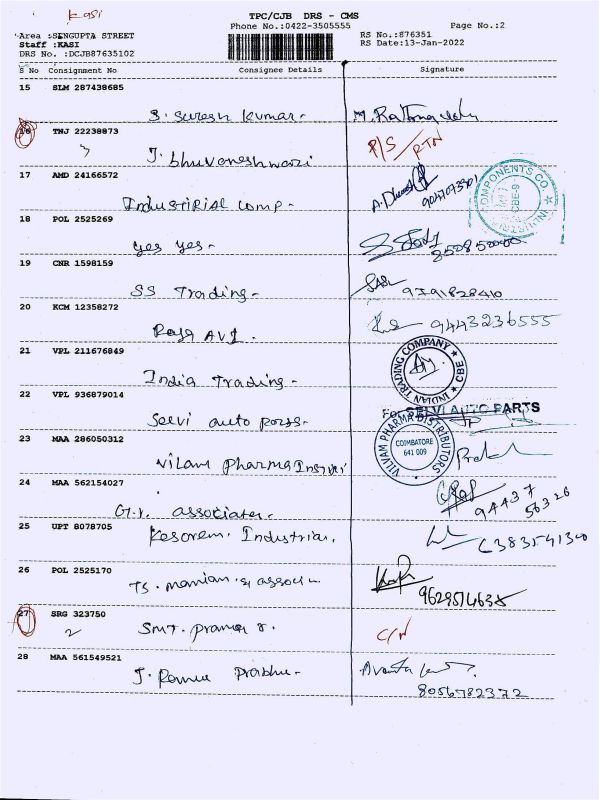 Kasi
TPC/CJB DRS - CMS
Phone No.:0422-3505555
Page No.:2
Area :SENGUPTA STREET
Staff :KASI
DRS No. :DCJB87635102
RS No.:876351
RS Date:13-Jan-2022
S No Consignment No Consignee Details Signature
15 SLM 287438685
S. Suresh Kumar-
16 TNJ 22238873
J. bhuvaneshwari
R/S/RTN
17 AMD 24166572
Industirial Comp-
COMPONENTS CO
CBE-9
18 POL 2525269
yes yes-
19 CNR 1598159
SS Trading-
9791828410
20 KCM 12358272
Raja AVI.
9443236555
21 VPL 211676849
India Trading-
INDIAN TRADING COMPANY CBE
22 VPL 936879014
Selvi auto
For SELVI AUTO PARTS
23 MAA 286050312
Vilam Pharma
VILLIAM PHARMA DISTRIBUTORS
COIMBATORE
641 009
24 MAA 562154027
G.I. associates.
94437
56326
25 UPT 8078705
Kesorem Industrial.
26 POL 2525170
TS. manian &
27 SRG 323750
2
Smt. Pramea
C/N
28 MAA 561549521
J. Prabhu-
8056782372